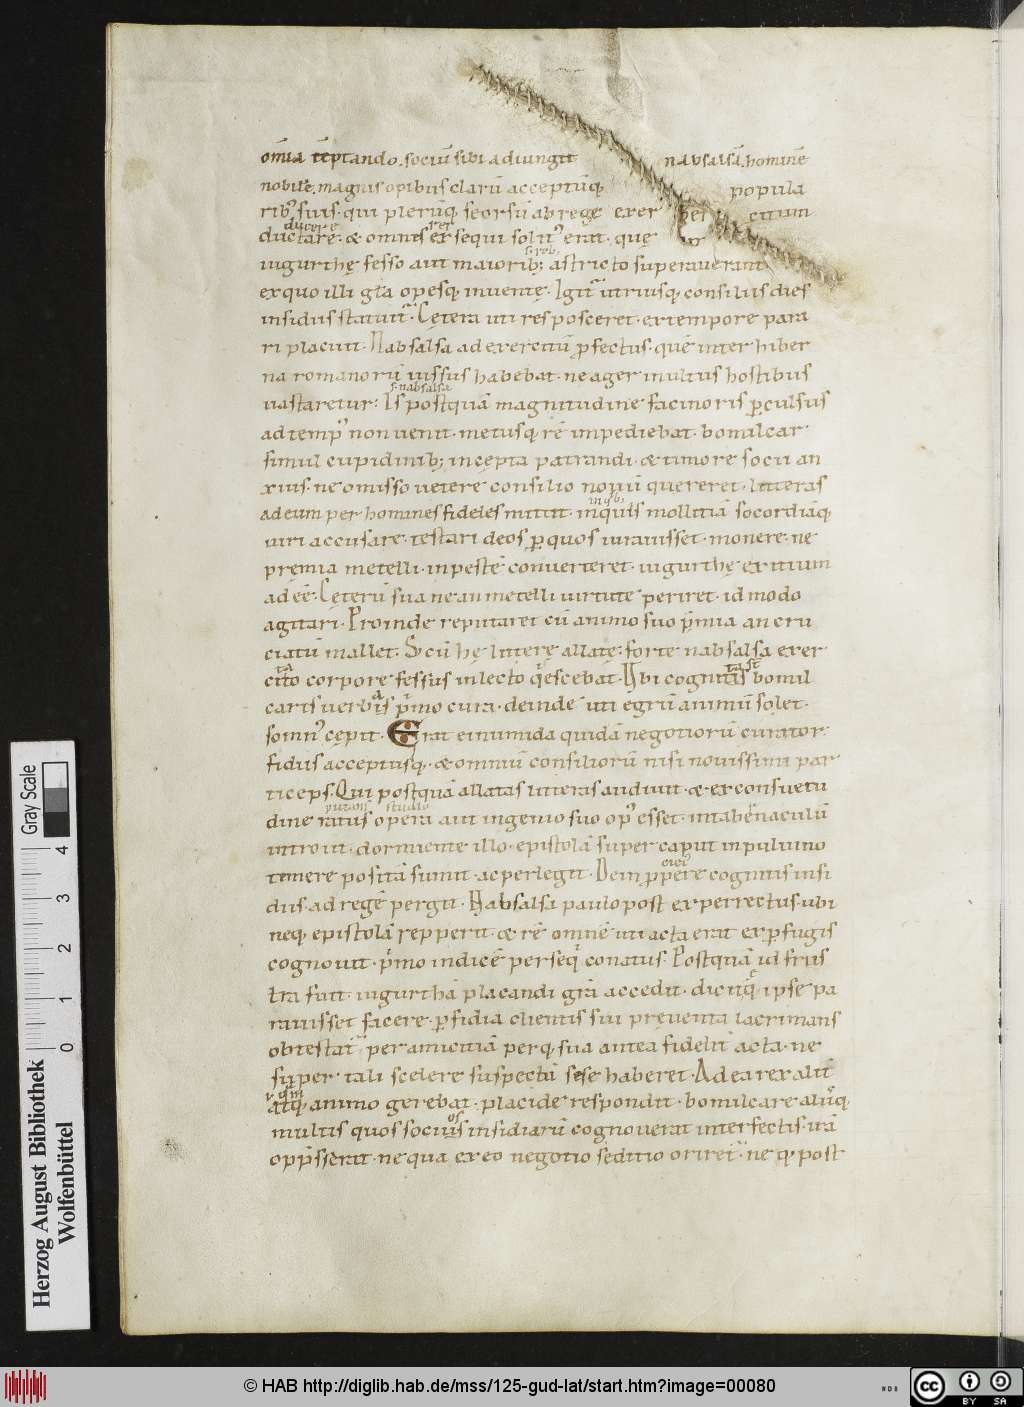 om̄ia tēptando. sociū sibi adiungit nabsalsā. hominē
nobilē. magnis opibus clarū acceptūq; popula
rib᷒ suis. qui plerūq; seorsū ab rege exer citum
ducere
ductare. & omnes res exsequi solit᷒ erat. que
s. reb;
iugurthę fesso aut maiorib; astricto superauerant
ex quo illi gl̄a opesq; inventę. Igit᷑ utriusq; consiliis dies
insidiis statuit᷑. Cętera uti res posceret. extempore para
ri placuit. Nabsalsa ad exercitū p̄fectus. quē inter hiber
na romanorū iussus habebat. ne ager inultus hostibus
s. nabsalsa
uastaretur. Is postquā magnitudine facinoris ꝑculsus
ad temp᷒ non uenit. metusq; rē impediebat. bomilcar
simul cupidinib; incepta patrandi. & timore socii an
xius. ne omisso uetere consilio nouū quereret. litteras
ad eum per homines fideles mittit. in quis mollitiā socordiāq;
uiri accusare. testari deos ꝑ quos iurauisset. monere. ne
pręmia metelli. in pestē converteret. iugurthę exitium
adeē. Cęterū sua ne an metelli uirtute periret. id modo
agitari. Proinde reputaret cū animo suo p̄mia an cru
ciatū mallet. S; cū hę litterę allatę. forte nabsalsa exer
cito corpore fessus in lecto q̇escebat. Ubi cognitis bomil
caris uerbis p̍mo cura. deinde uti egrū animū solet.
somn᷒ cępit. Erat ei numida quidā negotiorū curator.
fidus acceptusq;. & omniū consiliorū nisi nouissimi par
ticeps. Qui postquā allatas litteras audiuit. & ex consuetu
putans studio
dine ratus opera aut ingenio suo op᷒ esset. in tabēnaculū
introiit. dormiente illo. epistolā super caput in puluino
temere positā sumit. ac perlegit. Dein ꝓpere cognitis insi
diis. ad regē pergit. Nabsalsa paulo post experrectus. ubi
neq; epistolā repperit. & rē omnē uti acta erat ex ꝑfugis
cognouit. p̍mo indicē perseq̍ conatus. Postquā id frus
tra fuit. iugurthā placandi gr̄a accedit. dicit q̄ ipse pa
rauisset facere. ꝑfidia clientis sui preventa lacrimans
obtestat᷑ per amicitiā perq; sua antea fidelit̄ acta. ne
super tali scelere suspectū sese haberet. Ad ea rex alit̄
atq; animo gerebat. placide respondit. bomilcare aliisq;
multis quos socios insidiarū cognouerat interfectis. irā
opp̄sserat. ne qua ex eo negotio seditio oriret᷑. neq; post
Gray Scale
0 1 2 3 4
Herzog August Bibliothek
Wolfenbüttel
© HAB http://diglib.hab.de/mss/125-gud-lat/start.htm?image=00080
cc BY SA